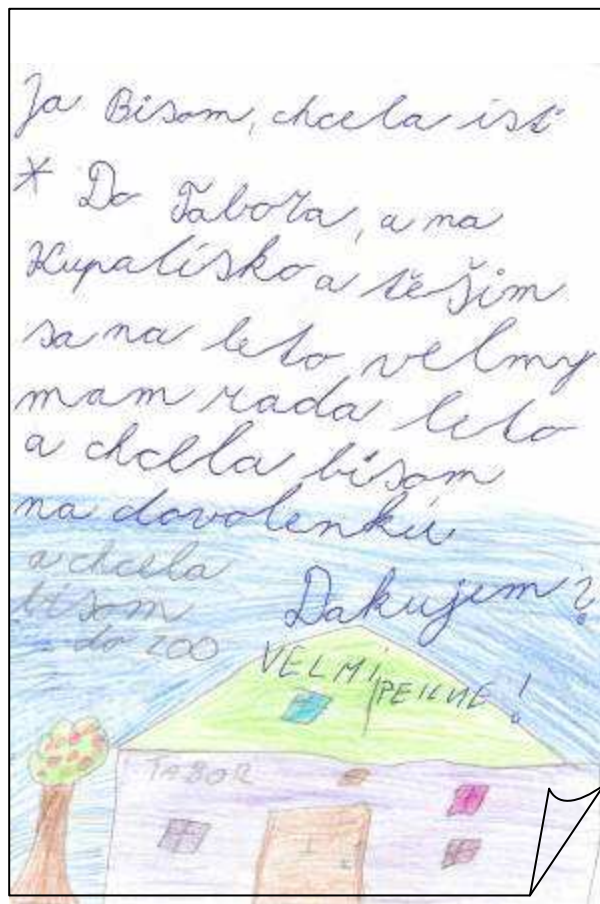 Ja Bisom, chcela isť
* Do Tabora, a na
Kupalisko a těšim
sa na leto velmy
mam rada leto
a chcela bisom
na dovolenkú
a chcela
bisom
do zoo
Dakujem?
VELMI PEKNE!
TABOR